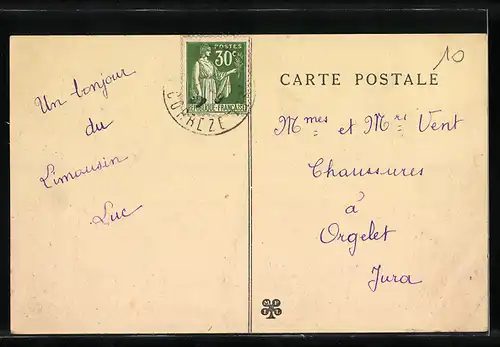 Un bonjour
du
Limousin
Luc
POSTES
30c
REPUBLIQUE FRANÇAISE
CORREZE
CARTE POSTALE
10
Mmes et Mrs Vent
Chaussures
à
Orgelet
Jura